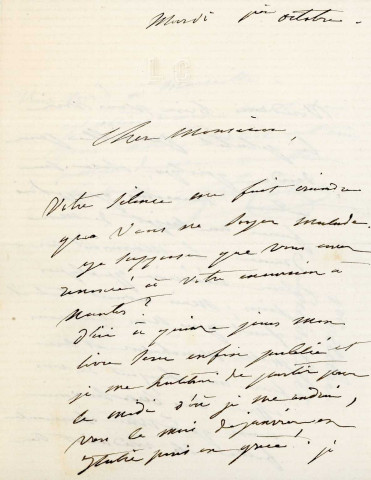 Mardi 1er octobre.
Cher Monsieur,
Votre silence me fait craindre
que vous ne soyez malade.
Je suppose que vous avez
renoncé à votre excursion à
Nantes?
D'ici à quinze jours mon
livre sera enfin publié et
je me hâterai de partir pour
le midi d'où je me rendrai,
vers le mois de janvier, en
Italie puis en Grèce. Je